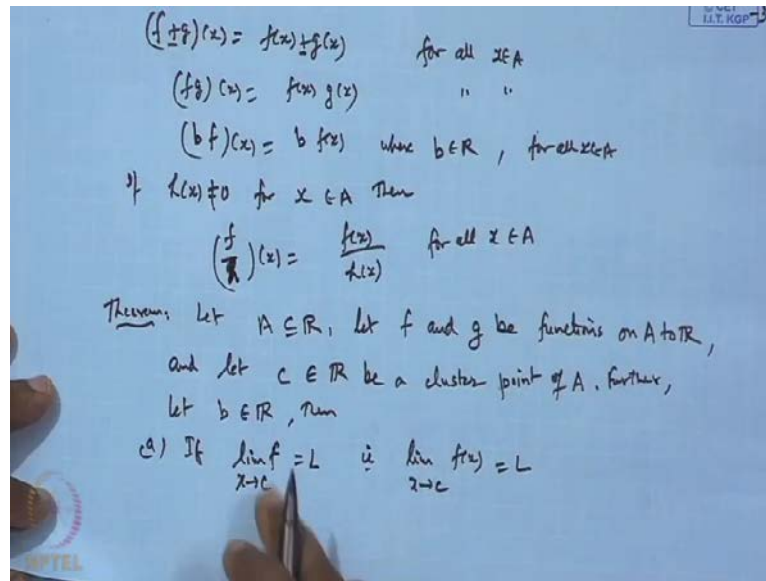 © CET
I.I.T. KGP
(f ± g)(x) = f(x) ± g(x) for all x ∈ A
(fg)(x) = f(x) g(x) " "
(bf)(x) = b f(x) where b ∈ R, for all x ∈ A
If h(x) ≠ 0 for x ∈ A Then
(f/h)(x) = f(x)/h(x) for all x ∈ A
Theorem: Let A ⊆ R, let f and g be functions on A to R,
and let c ∈ R be a cluster point of A. Further,
let b ∈ R, Then
(a) If lim f = L ie lim f(x) = L
x→c x→c
NPTEL